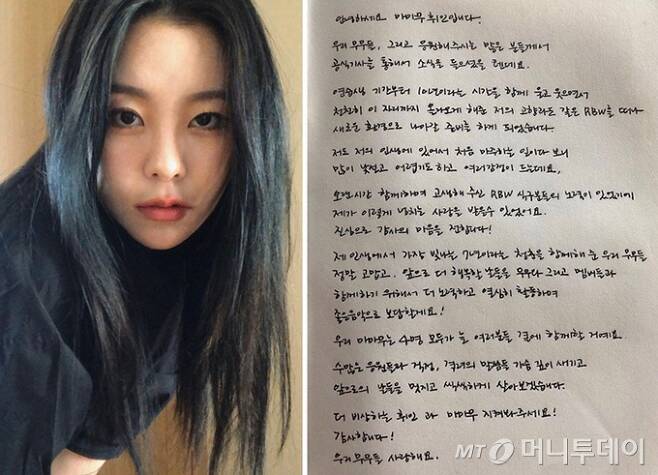 안녕하세요 마마무 휘인입니다.
우리 무무들, 그리고 응원해주시는 많은 분들께서
공식기사를 통해서 소식을 들으셨을 텐데요.
연습생 기간부터 10년이라는 시간을 함께 울고 웃으면서
천천히 이 자리까지 올라오게 해준 저의 고향과도 같은 RBW를 떠나
새로운 환경으로 나아갈 준비를 하게 되었습니다.
저도 저의 인생에 있어서 처음 마주하는 일이다 보니
많이 낯설고 어렵기도 하고 여러감정이 드는데요,
오랜시간 함께하며 고생해 주신 RBW 식구분들의 노력이 있었기에
제가 이렇게 넘치는 사랑을 받을수 있었어요.
진심으로 감사의 마음을 전합니다!
제 인생에서 가장 빛나는 7년이라는 청춘을 함께해 준 우리 무무들
정말 고맙고, 앞으로 더 행복한 날들을 무무와 그리고 멤버들과
함께하기 위해서 더 노력하고 열심히 활동하며
좋은음악으로 보답할게요!
우리 마마무는 4명 모두가 늘 여러분들 곁에 함께할 거예요.
수많은 응원들과 걱정, 격려의 말씀들 가슴 깊이 새기고
앞으로의 날들을 멋지고 씩씩하게 살아보겠습니다.
더 비상하는 휘인 과 마마무 지켜봐주세요!
감사합니다!
우리 무무들 사랑해요.
MT 머니투데이